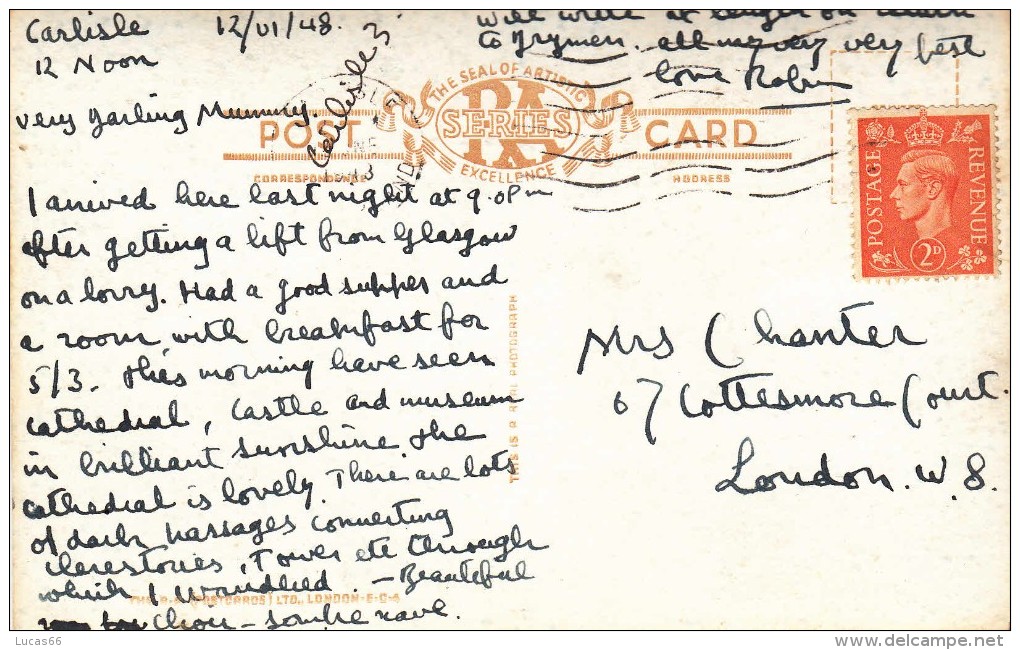 Carlisle 12/VI/48.
12 Noon
very darling Mummy.
I arrived here last night at 9.0pm
after getting a lift from Glasgow
on a lorry. Had a good supper and
a room with breakfast for
5/3. This morning have seen
cathedral, Castle and museum
in brilliant sunshine the
cathedral is lovely. There are lots
of dark passages connecting
clerestories, Tower etc through
which I wandered. - Beautiful
Choir - sombre nave.
Carlisle 3
will write at length on return
to Drymen. all my very very best
love Robin
THE SEAL OF ARTISTIC
EXCELLENCE
SERIES
POST CARD
CORRESPONDENCE ADDRESS
THIS IS A REAL PHOTOGRAPH
(POSTCARDS) LTD., LONDON. E.C.4
POSTAGE REVENUE
2D
Mrs Chanter
67 Cottesmore Court.
London. W. 8.
Lucas66
delcampe.net